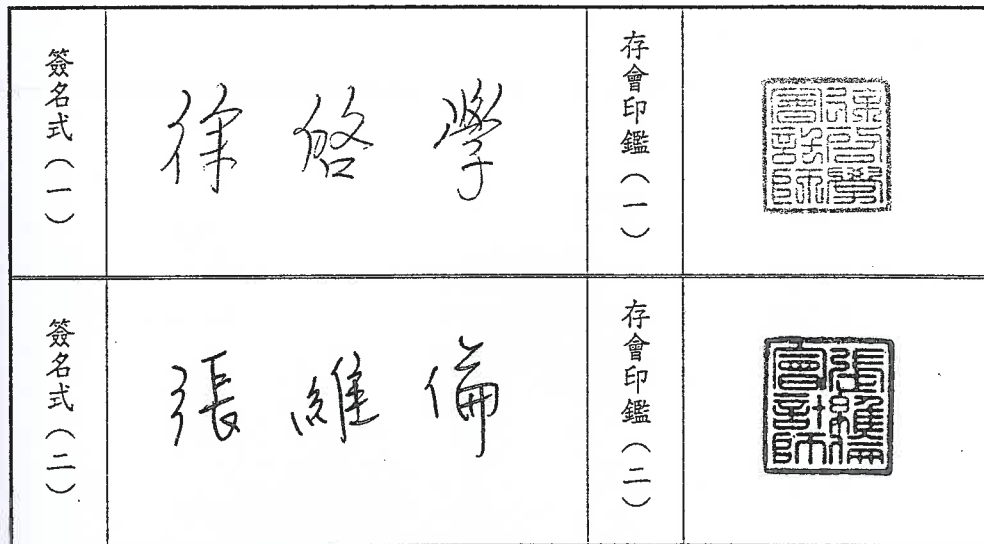 簽名式（一）
徐 啓 學
存會印鑑（一）
徐啓學
會計師
簽名式（二）
張 維 倫
存會印鑑（二）
張維倫
會計師